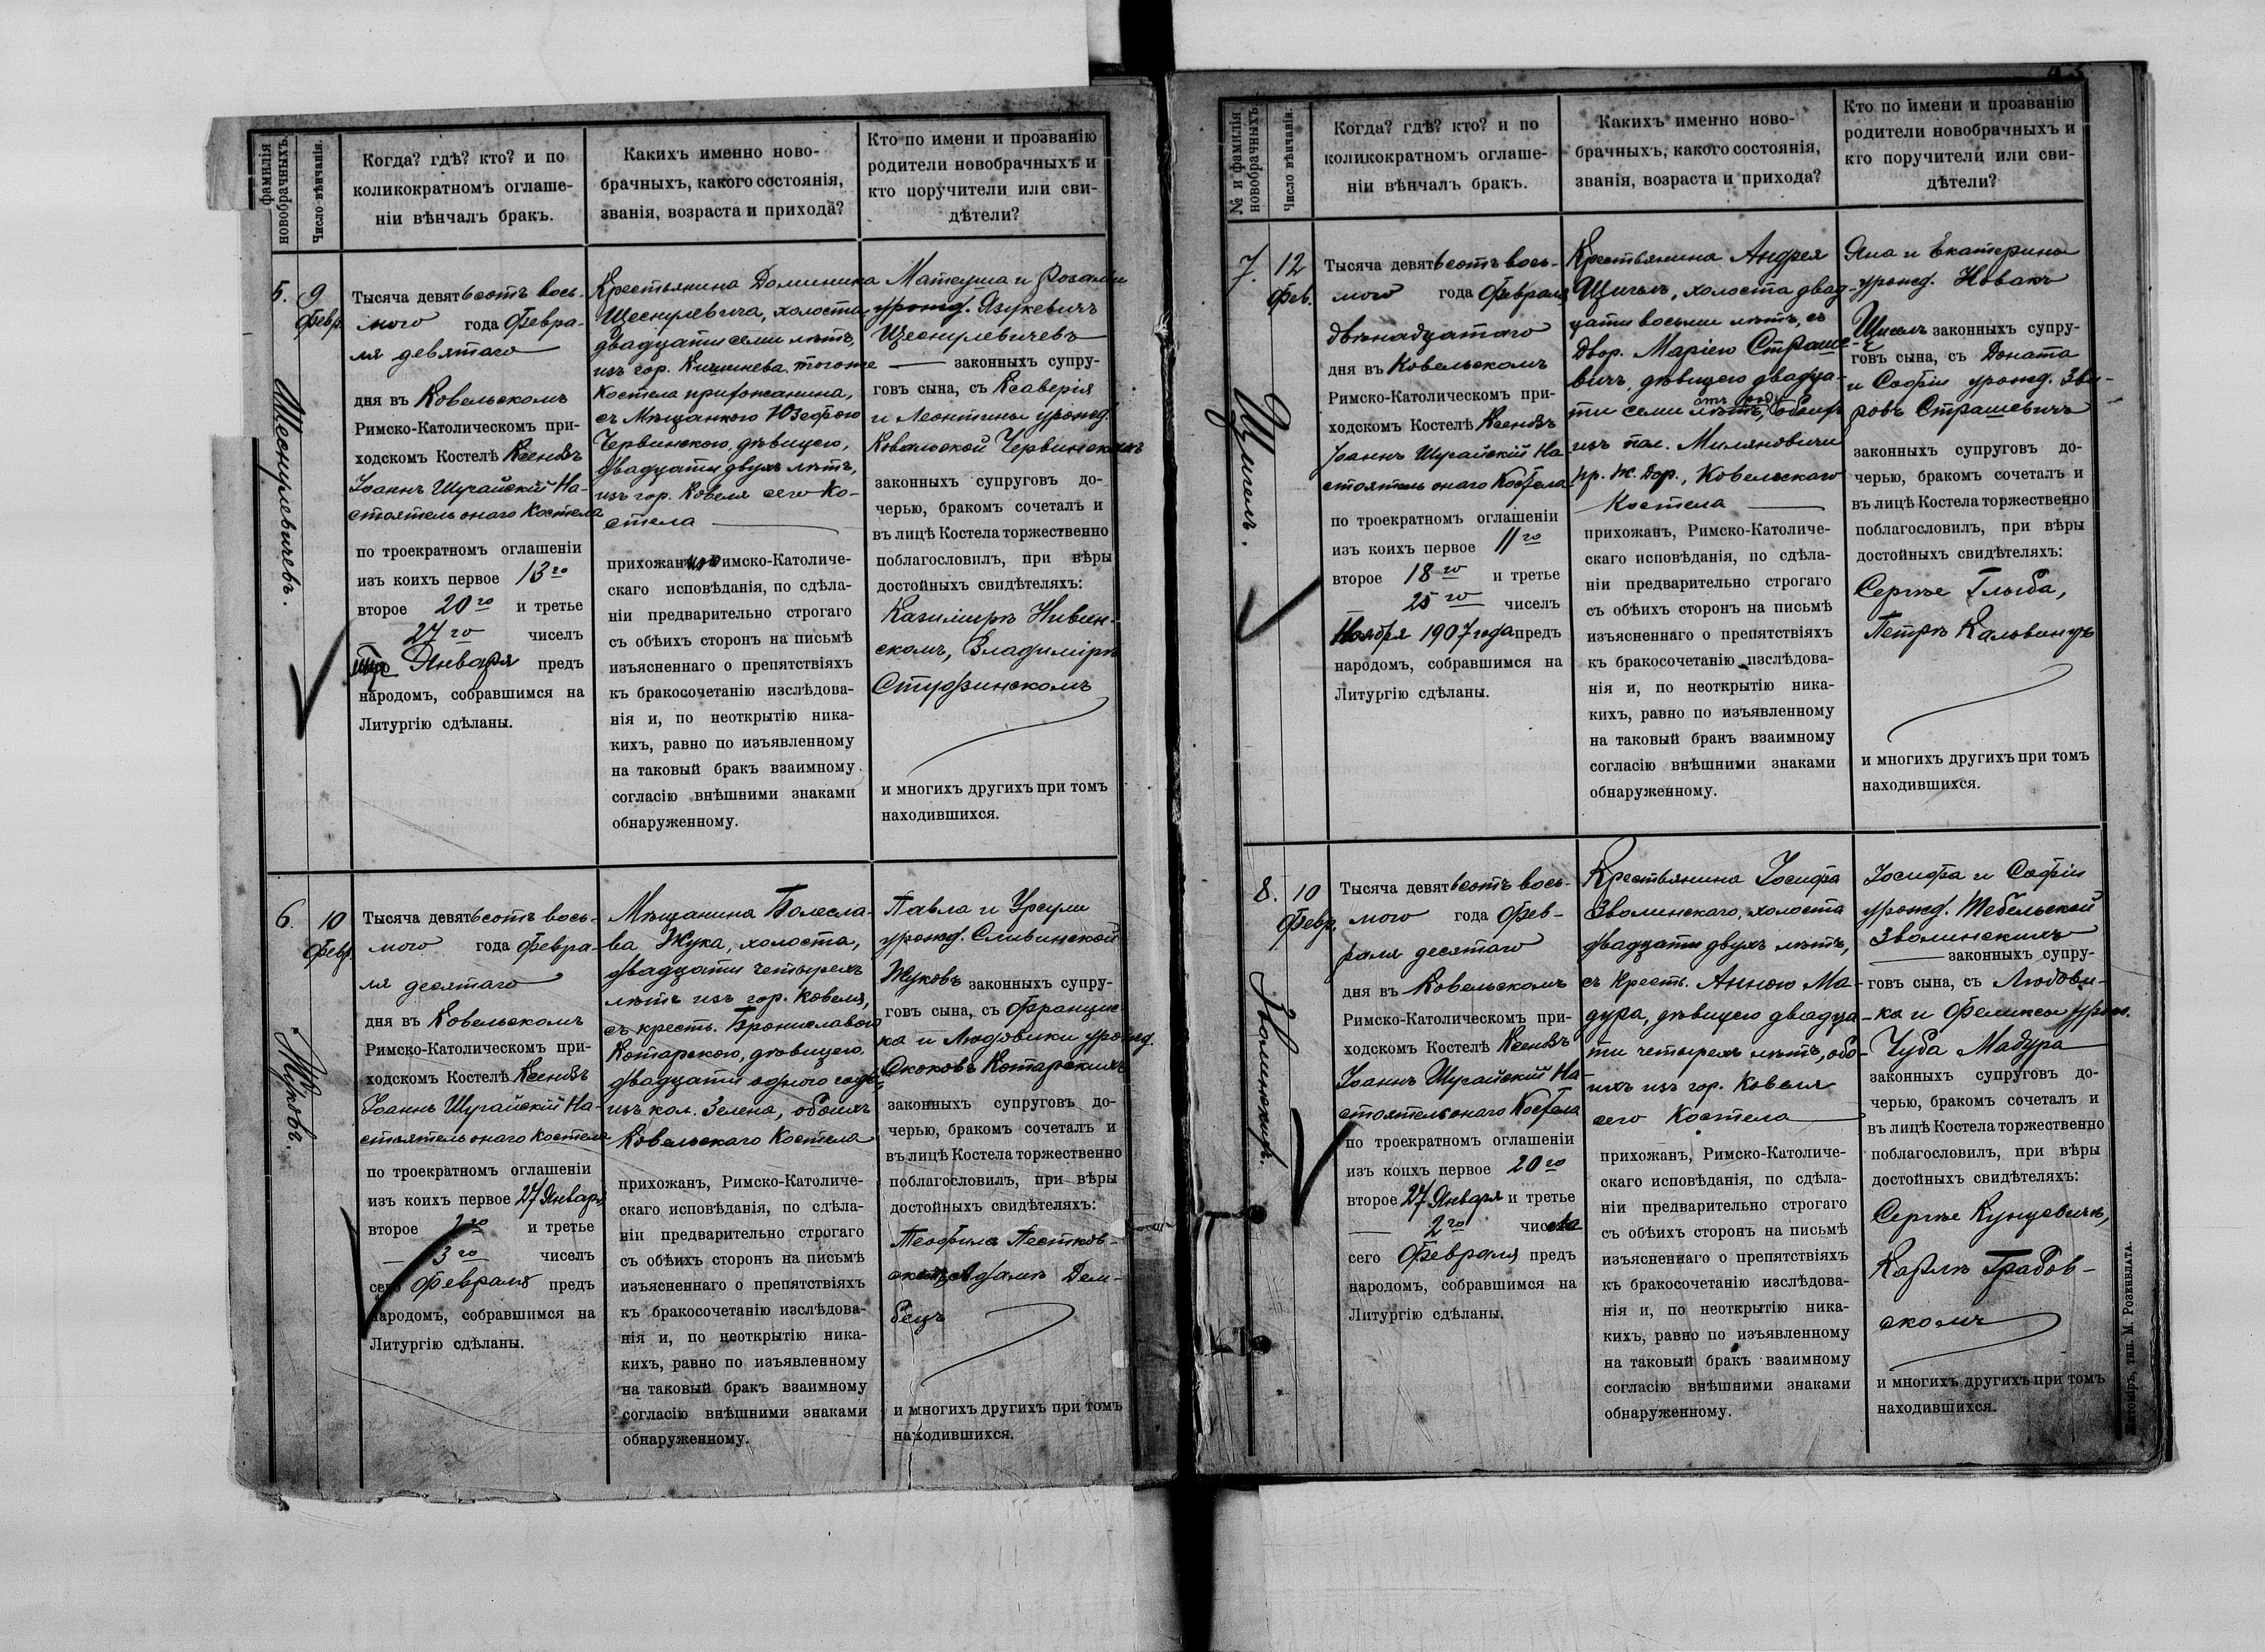 фамилія
новобрачныхъ.
Число вѣнчанія.
Когда? гдѣ? кто? и по
коликократномъ оглаше-
ніи вѣнчалъ бракъ.
Какихъ именно ново-
брачныхъ, какого состоянія,
званія, возраста и прихода?
Кто по имени и прозванію
родители новобрачныхъ и
кто поручители или сви-
дѣтели?
5.
9
Февр.
Тысяча девятьсотъ вось-
мого года Февра-
ля девятаго
дня въ Ковельскомъ
Римско-Католическомъ при-
ходскомъ Костелѣ Ксендзъ
Іоаннъ Шугайскій На-
стоятель онаго Костела
по троекратномъ оглашеніи
изъ коихъ первое 13го
второе 20го и третье
27го чиселъ
Января предъ
народомъ, собравшимся на
Литургію сдѣланы.
Крестьянина Доминика
Шеснулевича, холоста,
двадцати семи лѣтъ,
изъ гор. Кишинева тогоже
Костела прихожанина,
съ Мѣщанкою Юзефою
Червинскою, дѣвицею,
двадцати двухъ лѣтъ,
изъ гор. Ковеля сего Ко-
стела
прихожан Римско-Католиче-
скаго исповѣданія, по сдѣла-
ніи предварительно строгаго
съ обѣихъ сторонъ на письмѣ
изъясненнаго о препятствіяхъ
къ бракосочетанію изслѣдова-
нія и, по неоткрытію ника-
кихъ, равно по изъявленному
на таковый бракъ взаимному
согласію внѣшними знаками
обнаруженному.
Матеуша и Розаліи
урожд. Язукевичъ
Шеснулевичевъ
законныхъ супру-
говъ сына, съ Ксаверія
и Леонтины урожд.
Ковальской Червинскихъ
законныхъ супруговъ до-
черью, бракомъ сочеталъ и
въ лицѣ Костела торжественно
поблагословилъ, при вѣры
достойныхъ свидѣтеляхъ:
Казимирѣ Нивин-
скомъ, Владимірѣ
Струфинскомъ
и многихъ другихъ при томъ
находившихся.
Шеснулевичевъ.
6.
10
Февр.
Тысяча девятьсотъ вось-
мого года Февра-
ля десятаго
дня въ Ковельскомъ
Римско-Католическомъ при-
ходскомъ Костелѣ Ксендзъ
Іоаннъ Шугайскій На-
стоятель онаго Костела
по троекратномъ оглашеніи
изъ коихъ первое 27 Января
второе 2го и третье
3го чиселъ
сего Февраля предъ
народомъ, собравшимся на
Литургію сдѣланы.
Мѣщанина Болесла-
ва Жука, холоста,
двадцати четырехъ
лѣтъ изъ гор. Ковеля,
съ крест. Брониславою
Котарскою, дѣвицею,
двадцати одного года,
изъ кол. Зелена, обоихъ
Ковельскаго Костела
прихожанъ, Римско-Католиче-
скаго исповѣданія, по сдѣла-
ніи предварительно строгаго
съ обѣихъ сторонъ на письмѣ
изъясненнаго о препятствіяхъ
къ бракосочетанію изслѣдова-
нія и, по неоткрытію ника-
кихъ, равно по изъявленному
на таковый бракъ взаимному
согласію внѣшними знаками
обнаруженному.
Павла и Урсули
урожд. Сливинской
Жуковъ законныхъ супру-
говъ сына, съ Францис-
ка и Людовики урожд.
Ококовъ Котарскихъ
законныхъ супруговъ до-
черью, бракомъ сочеталъ и
въ лицѣ Костела торжественно
поблагословилъ, при вѣры
достойныхъ свидѣтеляхъ:
Теофилѣ Пестков-
скомъ Адамѣ Дем-
бецъ
и многихъ другихъ при томъ
находившихся.
Жуковъ.
№ и фамилія
новобрачныхъ
Число вѣнчанія.
Когда? гдѣ? кто? и по
коликократномъ оглаше-
ніи вѣнчалъ бракъ.
Какихъ именно ново-
брачныхъ, какого состоянія,
званія, возраста и прихода?
Кто по имени и прозванію
родители новобрачныхъ и
кто поручители или сви-
дѣтели?
7.
12
Фев.
Тысяча девятьсотъ вось-
мого года Февраля
двѣнадцатаго
дня въ Ковельскомъ
Римско-Католическомъ при-
ходскомъ Костелѣ Ксендзъ
Іоаннъ Шугайскій На
стоятель онаго Костела
по троекратномъ оглашеніи
изъ коихъ первое 11го
второе 18го и третье
25го чиселъ
Ноября 1907 года предъ
народомъ, собравшимся на
Литургію сдѣланы.
Крестьянина Андрея
Щигель, холоста двад-
цати восьми лѣтъ, съ
Двор. Маріею Страше-
вичъ, дѣвицею двадца-
ти семи лѣтъ, отъ роду обоихъ
изъ пол. Миляновичи
пр. ж. дор., Ковельскаго
Костела
прихожанъ, Римско-Католиче-
скаго исповѣданія, по сдѣла-
ніи предварительно строгаго
съ обѣихъ сторонъ на письмѣ
изъясненнаго о препятствіяхъ
къ бракосочетанію изслѣдова-
нія и, по неоткрытію ника-
кихъ, равно по изъявленному
на таковый бракъ взаимному
согласію внѣшними знаками
обнаруженному.
Яна и Екатерины
урожд. Новакъ
законныхъ супру-
говъ сына, съ Доната
и Софіи урожд. Зви-
ровъ Страшевичъ
законныхъ супруговъ до-
черью, бракомъ сочеталъ и
въ лицѣ Костела торжественно
поблагословилъ, при вѣры
достойныхъ свидѣтеляхъ:
Сергѣе Глыба,
Петрѣ Кальвинцъ
и многихъ другихъ при томъ
находившихся.
Щигель.
8.
10
Февр.
Тысяча девятьсотъ вось-
мого года Фев-
раля десятаго
дня въ Ковельскомъ
Римско-Католическомъ при-
ходскомъ Костелѣ Ксендзъ
Іоаннъ Шугайскій На-
стоятель онаго Костела
по троекратномъ оглашеніи
изъ коихъ первое 20го
второе 27 Января и третье
2го числа
сего Февраля предъ
народомъ, собравшимся на
Литургію сдѣланы.
Крестьянина Іосифа
Зволинскаго, холоста
двадцати двухъ лѣтъ,
съ Крест. Анною Ма-
дура, дѣвицею двадца-
ти четырехъ лѣтъ, обо-
ихъ изъ гор. Ковеля
сего Костела
прихожанъ, Римско-Католиче-
скаго исповѣданія, по сдѣла-
ніи предварительно строгаго
съ обѣихъ сторонъ на письмѣ
изъясненнаго о препятствіяхъ
къ бракосочетанію изслѣдова-
нія и, по неоткрытію ника-
кихъ, равно по изъявленному
на таковый бракъ взаимному
согласію внѣшними знаками
обнаруженному.
Іосифа и Софіи
урожд. Тебельской
Зволинскихъ
законныхъ супру-
говъ сына, съ Людови-
ка и Феликсы урож.
Чуба Мадура
законныхъ супруговъ до-
черью, бракомъ сочеталъ и
въ лицѣ Костела торжественно
поблагословилъ, при вѣры
достойныхъ свидѣтеляхъ:
Сергѣе Кунцевичъ,
Карлѣ Грабов-
скомъ
и многихъ другихъ при томъ
находившихся.
Зволинскихъ.
Житоміръ, тип. М. Розенблата.